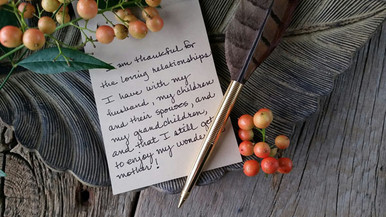 am thankful for
the loving relationships
I have with my
husband, my children
and their spouses, and
my grandchildren,
and that I still get
to enjoy my wonde
mother!